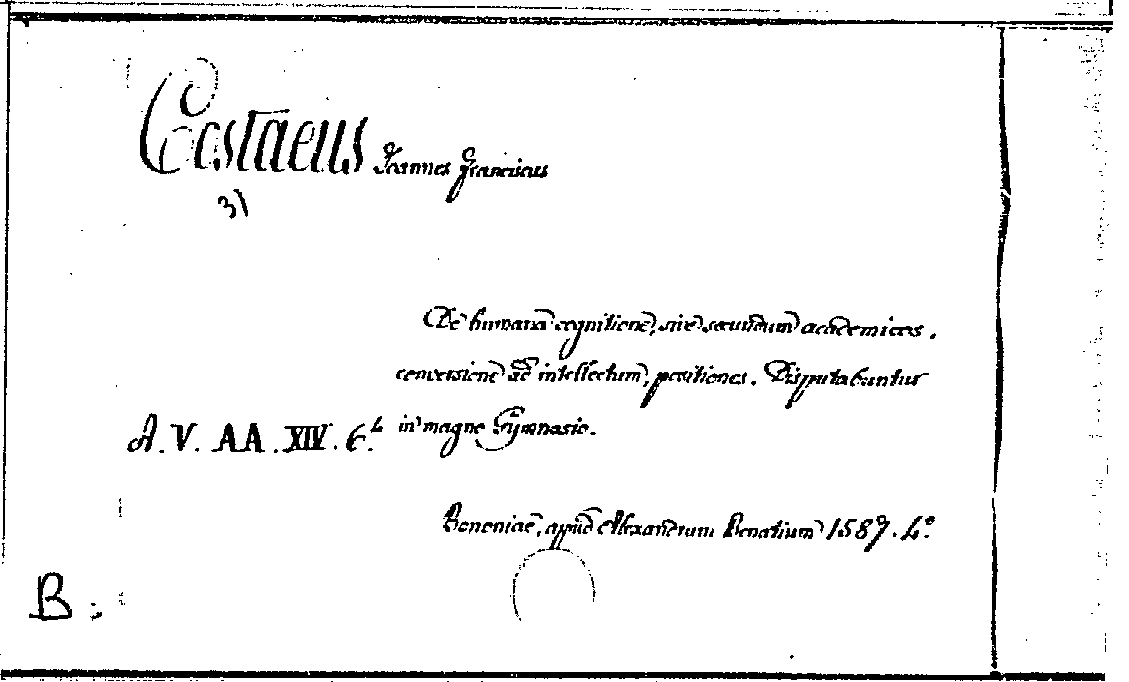 Costaeus Joannes Franciscus
3)
De humana cognitione, sive secundum academicos.
conversione ad intellectum, positiones. Disputabuntur
A. V. AA. XIV. 6.L in magno Gymnasio.
Bononiae, apud Alexandrum Benatium 1587. 4°.
B